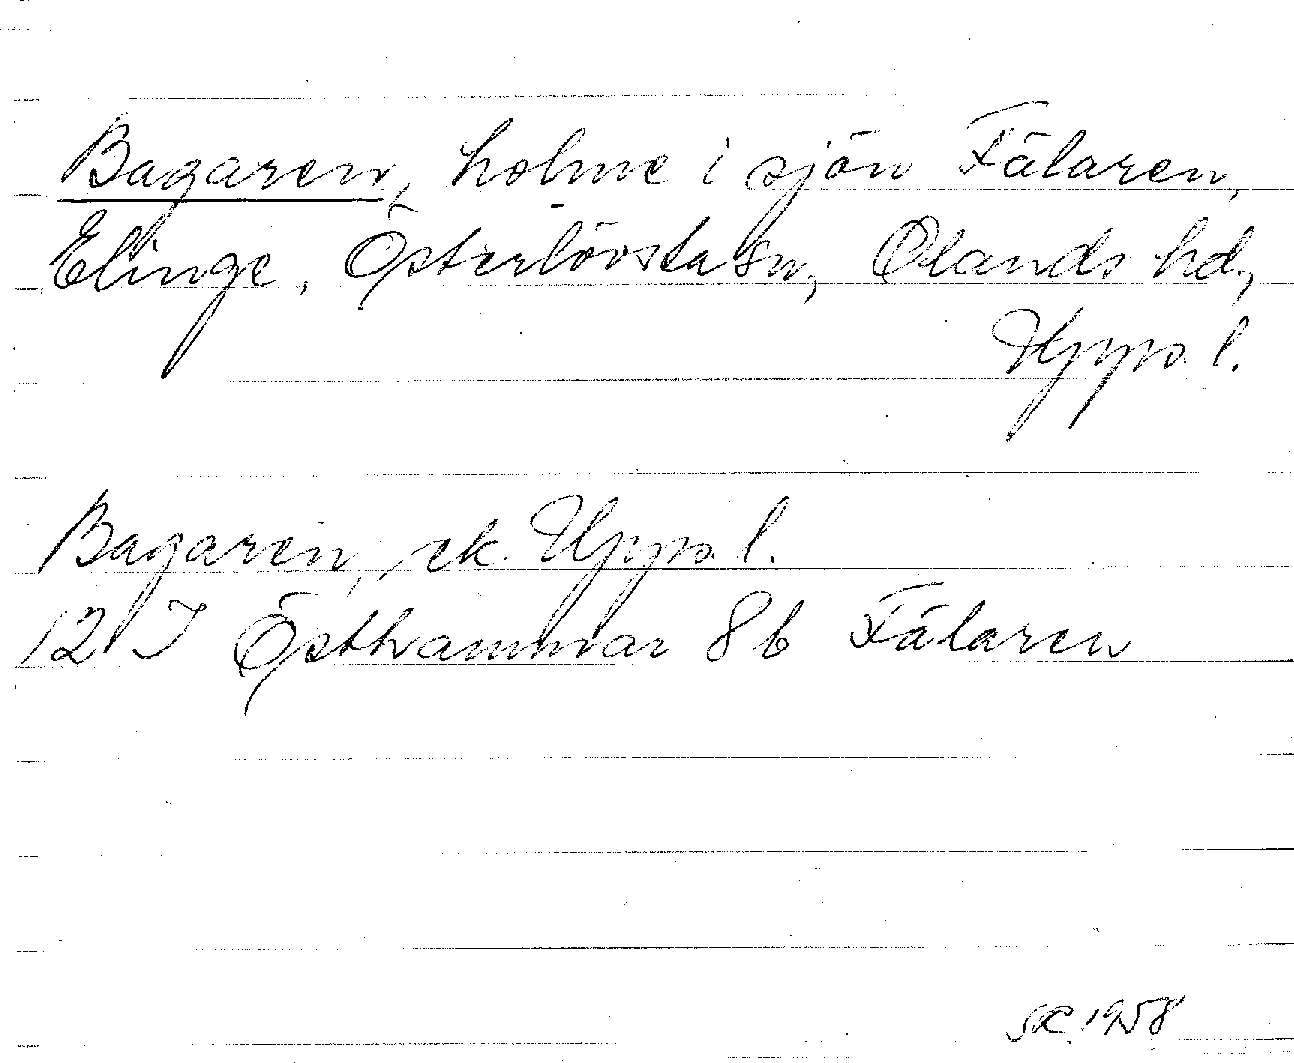 Bagaren, holme i sjön Fälaren,
Elinge, Österlövsta sn, Olands hd,
Upps. l.
Bagaren, ek. Upps. l.
12 I Östhammar 8b Fälaren
1958